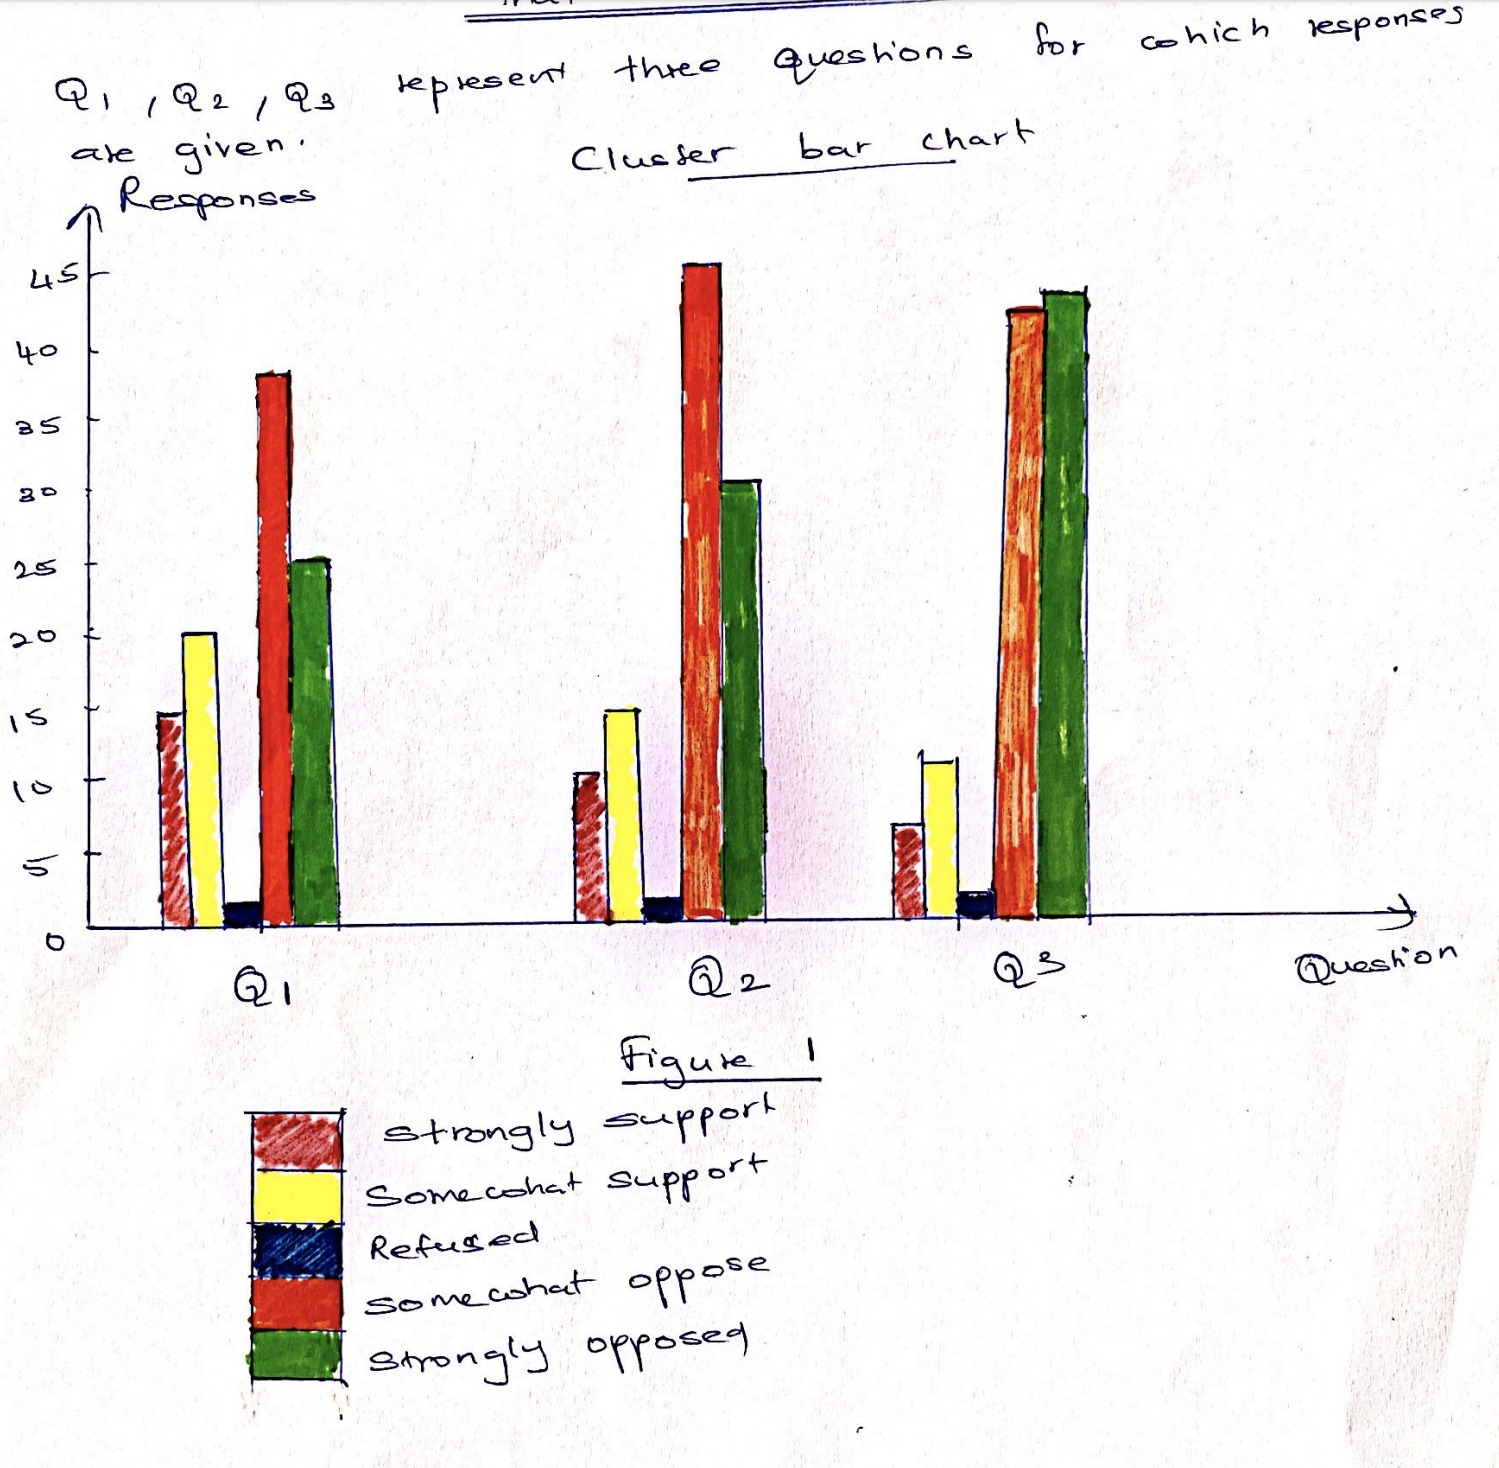 Q1, Q2, Q3 represent three Questions for which responses
are given.
Cluster bar chart
Responses
45
40
35
30
25
20
15
10
5
0
Q1 Q2 Q3 Question
Figure 1
Strongly support
Somewhat support
Refused
Somewhat oppose
Strongly opposed